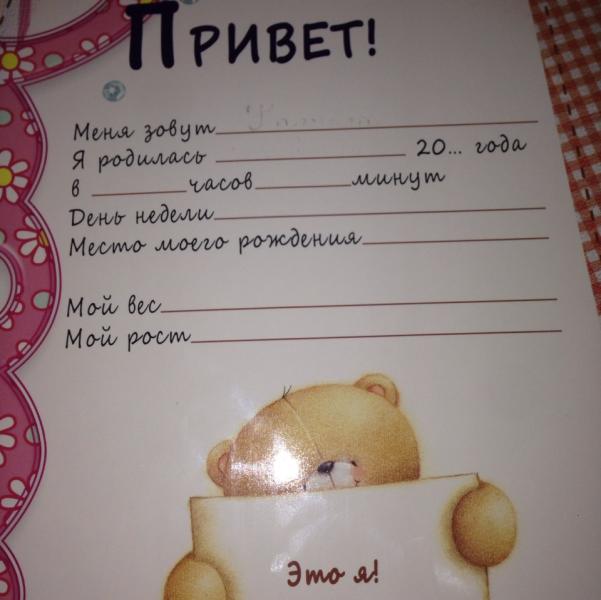 Привет!
Меня зовут
Я родилась 20... года
в часов минут
День недели
Место моего рождения
Мой вес
Мой рост
Это я!